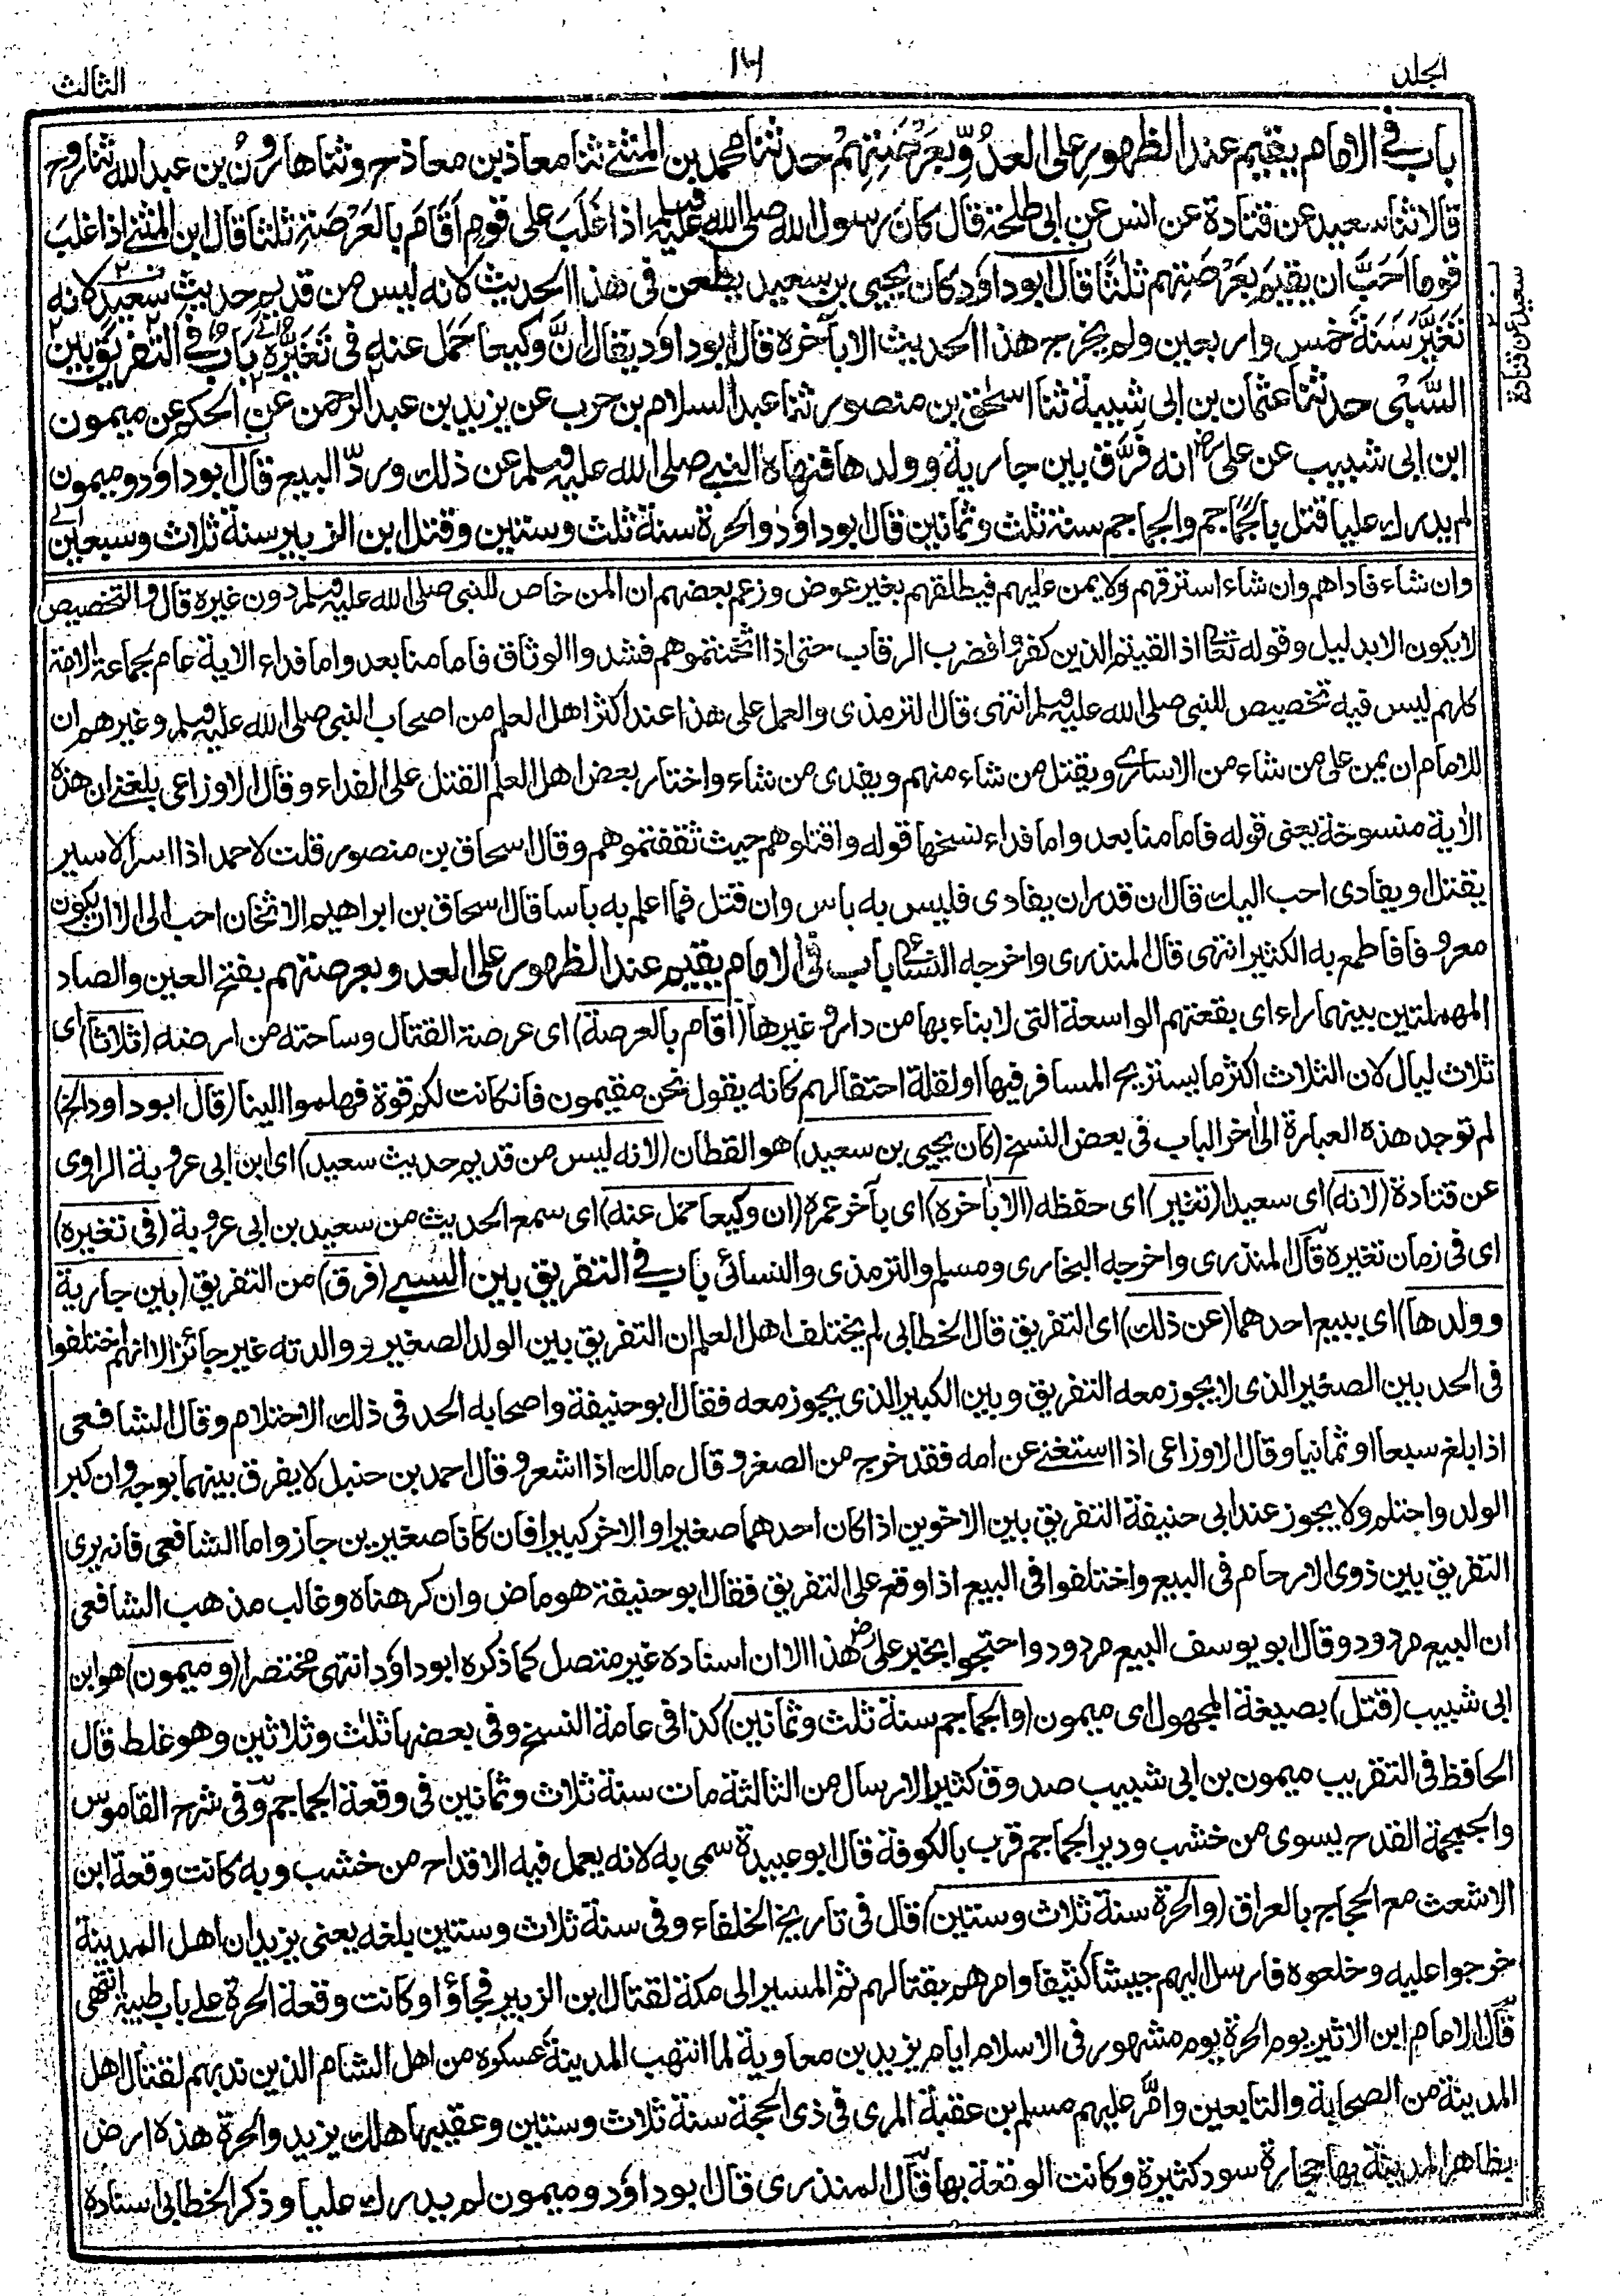 المجلد
١٦
الثالث
باب في الامام يقيم عند الظهور على العدُوِّ بعَرْصَتِهِمْ حدثنا محمد بن المثنى ثنا معاذ بن معاذ ح وثنا هارونُ بن عبد الله ثنا روح
قالا ثنا سعيد عن قتادة عن انس عن ابى طلحة قال كان رسول الله صلى الله عليه وسلم اذا غَلَبَ على قوم اَقَامَ بالعَرْصَةِ ثلثا قال ابن المثنى اذا غلبَ
قوما اَحَبَّ ان يقيمَ بعَرْصَتِهم ثلثًا قال ابوداوٗد كان يحيى بن سعيد يطعن فى هذا الحديث لانه ليس من قديم حديث سعيد لانه
تَغَيَّرَ سَنَةَ خمس واربعين ولم يخرج هذا الحديث الا بآخره قال ابوداوٗد يقال انَّ وكيعا حَمَل عنه فى تَغَيُّرِه باب في التفريق بين
السَّبْى حدثنا عثمان بن ابى شيبة ثنا اسحٰق بن منصور ثنا عبد السلام بن حرب عن يزيد بن عبد الرحمن عن الحكم عن ميمون
ابن ابى شبيب عن على رض انه فَرَّق بين جارية وولدها فنهاه النبى صلى الله عليه وسلم عن ذلك وردّ البيع قال ابوداوٗد وميمون
لم يدرك عليا قتل بالجَمَاجم والجماجم سنة ثلث وثمانين قال ابوداوٗد والحرة سنة ثلث وستين وقتل ابن الزبير سنة ثلاث وسبعين
سعيد عن قتادة
وان شاء فاداهم وان شاء استرقهم ولا يمن عليهم فيطلقهم بغير عوض وزعم بعضهم ان المن خاص للنبى صلى الله عليه وسلم دون غيره قال والتخصيص
لا يكون الا بدليل وقوله تعا اذ القيتم الذين كفروا فضرب الرقاب حتى اذا اثخنتموهم فشدوا الوثاق فاما منا بعد واما فداء الاية عام بجماعة الامة
كلهم ليس فيه تخصيص للنبى صلى الله عليه وسلم انتهى قال الترمذى والعمل على هذا عند اكثر اهل العلم من اصحاب النبى صلى الله عليه وسلم وغيرهم ان
للامام ان يمن على من شاء من الاسارى ويقتل من شاء منهم ويفدى من شاء واختار بعض اهل العلم القتل على الفداء وقال الاوزاعى بلغنى ان هذه
الآية منسوخة يعنى قوله فاما منا بعد واما فداء نسخها قوله واقتلوهم حيث ثقفتموهم وقال اسحاق بن منصور قلت لاحمد اذا اسر الاسير
يقتل او يفادى احب اليك قال ان قدر ان يفادى فليس به باس وان قتل فما اعلم به باسا قال اسحاق بن ابراهيم الاثخان احب الى الا ان يكون
معروفا فاطمع به الكثير انتهى قال المنذرى واخرجه النسائى باب في الامام يقيم عند الظهور على العدو بعرصتهم بفتح العين والصاد
المهملتين بينهما راء اى بقعتهم الواسعة التى لا بناء بها من دار وغيرها (اقام بالعرصة) اى عرصة القتال وساحته من ارضه (ثلاثا) اى
ثلاث ليال لان الثلاث اكثر ما يستريح المسافر فيها او لقلة احتفالهم كانه يقول نحن مقيمون فانكانت لكم قوة فهلموا الينا (قال ابوداود الخ)
لم توجد هذه العبارة الى آخر الباب فى بعض النسخ (كان يحيى بن سعيد) هو القطان (لانه ليس من قديم حديث سعيد) اى ابن ابى عروبة الراوى
عن قتادة (لانه) اى سعيدا (تغير) اى حفظه (الا بآخره) اى بآخر عمره (ان وكيعا حمل عنه) اى سمع الحديث من سعيد بن ابى عروبة (فى تغيره)
اى فى زمان تغيره قال المنذرى واخرجه البخارى ومسلم والترمذى والنسائى باب في التفريق بين السبى (فرق) من التفريق (بين جارية
وولدها) اى ببيع احدهما (عن ذلك) اى التفريق قال الخطابى لم يختلف اهل العلم ان التفريق بين الولد الصغير ووالدته غير جائز الا انهم اختلفوا
فى الحد بين الصغير الذى لا يجوز معه التفريق وبين الكبير الذى يجوز معه فقال ابو حنيفة واصحابه الحد فى ذلك الاحتلام وقال الشافعى
اذا بلغ سبعا او ثمانيا وقال الاوزاعى اذا استغنى عن امه فقد خرج من الصغر وقال مالك اذا اشعر وقال احمد بن حنبل لا يفرق بينهما بوجه وان كبر
الولد واحتلم ولا يجوز عند ابى حنيفة التفريق بين الاخوين اذا كان احدهما صغيرا والاخر كبيرا فان كانا صغيرين جاز واما الشافعى فانه يرى
التفريق بين ذوى الارحام فى البيع واختلفوا فى البيع اذا وقع على التفريق فقال ابو حنيفة هو ماض وان كرهناه وغالب مذهب الشافعى
ان البيع مردود وقال ابو يوسف البيع مردود واحتجوا بخبر على رض هذا الا ان اسناده غير متصل كما ذكره ابوداوٗد انتهى مختصرا (وميمون) هو ابن
ابى شبيب (قتل) بصيغة المجهول اى ميمون (والجماجم سنة ثلث وثمانين) كذا فى عامة النسخ وفى بعضها ثلث وثلاثين وهو غلط قال
الحافظ فى التقريب ميمون بن ابى شبيب صدوق كثير الارسال من الثالثة مات سنة ثلاث وثمانين فى وقعة الجماجم وفى شرح القاموس
والجمجمة القدح يسوى من خشب ودير الجماجم قرب بالكوفة قال ابو عبيدة سمى به لانه يعمل فيه الاقداح من خشب وبه كانت وقعة ابن
الاشعث مع الحجاج بالعراق (والحرة سنة ثلاث وستين) قال فى تاريخ الخلفاء وفى سنة ثلاث وستين بلغه يعنى يزيد ان اهل المدينة
خرجوا عليه وخلعوه فارسل اليهم جيشا كثيفا وامرهم بقتالهم ثم المسير الى مكة لقتال ابن الزبير فجاؤا وكانت وقعة الحرة على باب طيبة انتهى
قال الامام ابن الاثير يوم الحرة يوم مشهور فى الاسلام ايام يزيد بن معاوية لما انتهب المدينة عسكره من اهل الشام الذين ندبهم لقتال اهل
المدينة من الصحابة والتابعين وامَّر عليهم مسلم بن عقبة المرى فى ذى الحجة سنة ثلاث وستين وعقيبها هلك يزيد والحرة هذه ارض
بظاهر المدينة بها حجارة سود كثيرة وكانت الوقعة بها قال المنذرى قال ابوداوٗد وميمون لم يدرك عليا وذكر الخطابى اسناده